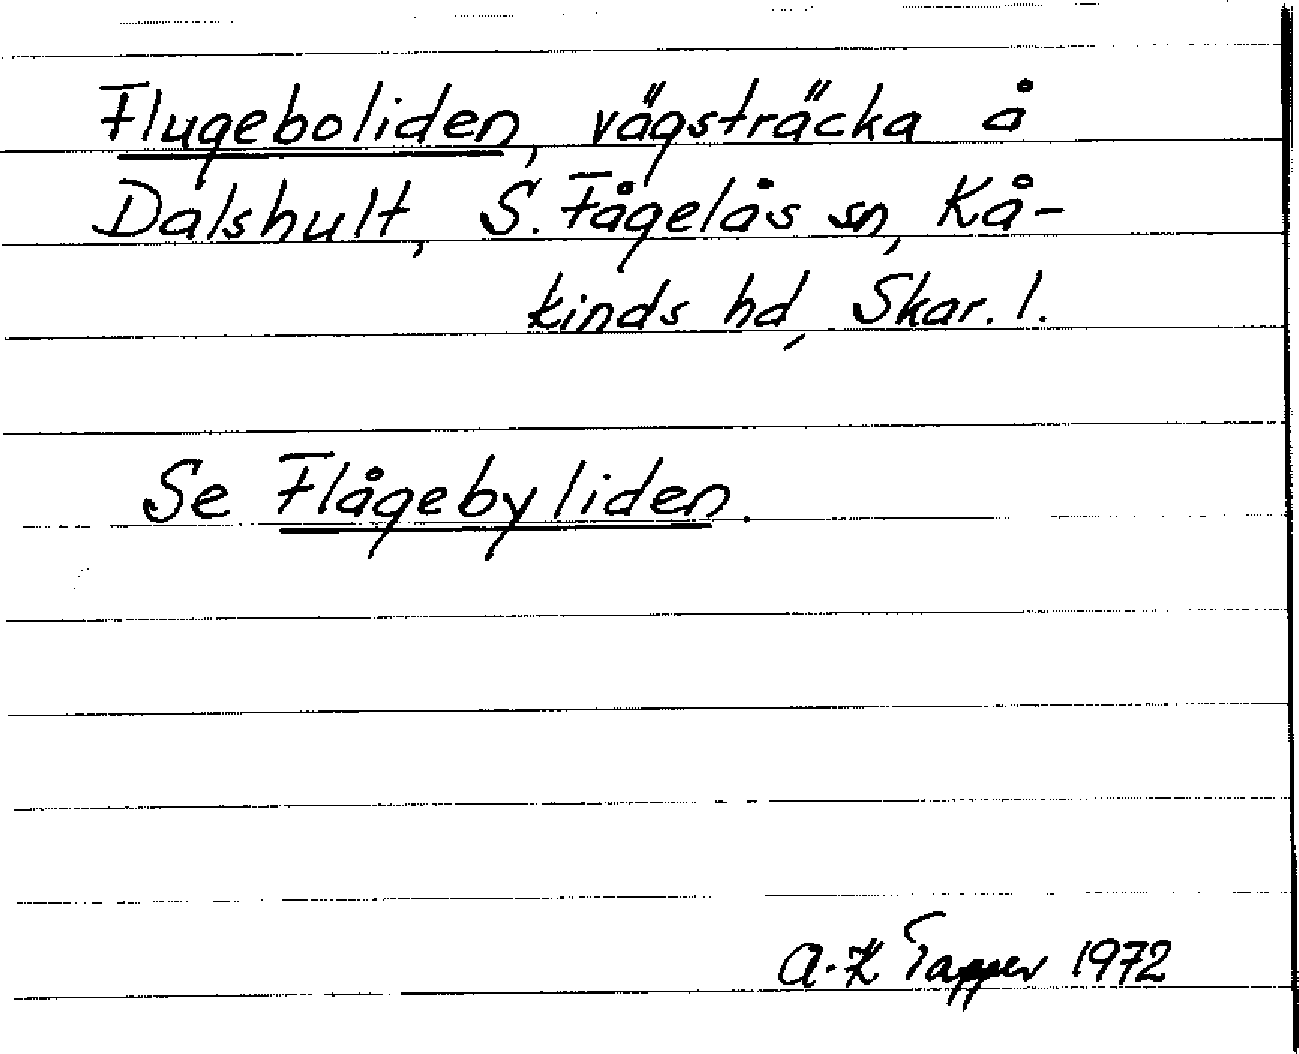 Flugeboliden, vägsträcka å
Dalshult, S. Fågelås sn, Kå-
kinds hd, Skar. l.
Se Flågebyliden.
A-K Tapper 1972